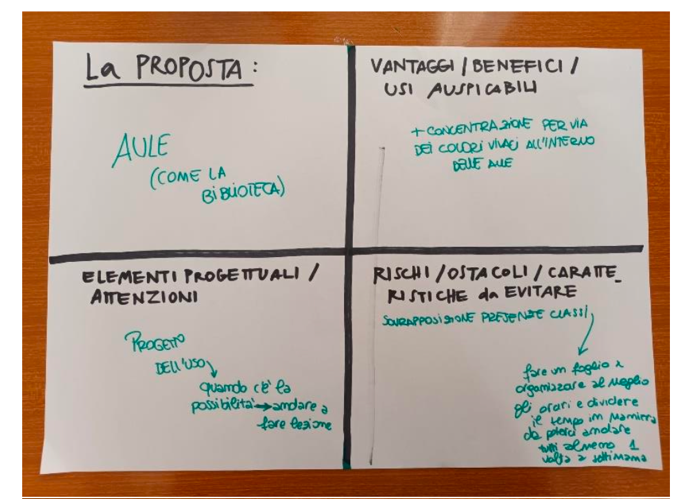 La PROPOSTA:
AULE
(COME LA
BIBLIOTECA)
VANTAGGI / BENEFICI /
USI AUSPICABILI
+ CONCENTRAZIONE PER VIA
DEI COLORI VIVACI ALL'INTERNO
DELLE AULE
ELEMENTI PROGETTUALI /
ATTENZIONI
PROGETTO
DELL'USO
quando c'è la
possibilità → andare a
fare lezione
RISCHI / OSTACOLI / CARATTE_
RISTICHE da EVITARE
SOVRAPPOSIZIONE PRESENZE CLASSI
fare un foglio x
organizzare al meglio
gli orari e dividere
il tempo in maniera
da poterci andare
tutti almeno 1
volta a settimana